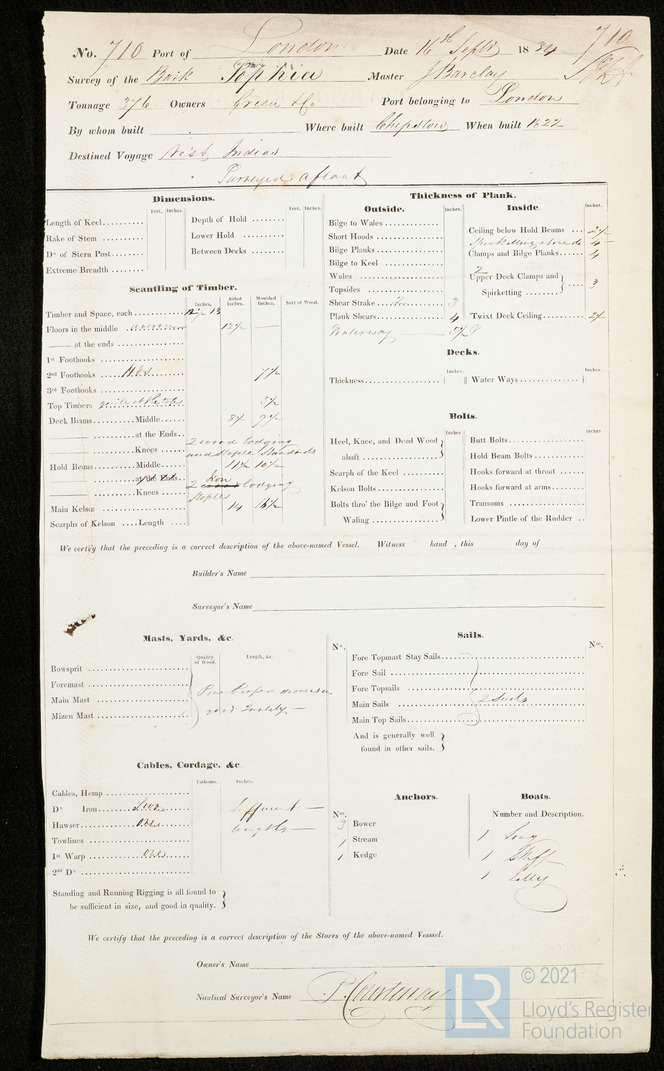 No. 710 Port of London Date 16th Septr 1834 710
Survey of the Bark Sophia Master J Barclay
Tonnage 376 Owners Green & Co Port belonging to London
By whom built Where built Chepstow When built 1822
Destined Voyage West Indies
Surveyed afloat
Dimensions.
Feet. Inches. Feet. Inches.
Length of Keel Depth of Hold
Rake of Stem Lower Hold
Do of Stern Post Between Decks
Extreme Breadth
Thickness of Plank.
Outside. Inches. Inside. Inches.
Bilge to Wales Ceiling below Hold Beams 2½
Short Hoods Spirketting above do 4
Bilge Planks Clamps and Bilge Planks 4
Bilge to Keel
Wales Upper Deck Clamps and
Topsides Spirketting 3
Shear Strake 3
Plank Shears 4 Twixt Deck Ceiling 2½
Waterway
Scantling of Timber.
Inches. Sided Inches. Moulded Inches. Sort of Wood.
Timber and Space, each
Floors in the middle 12½
at the ends
1st Foothooks
2nd Foothooks 7½
3rd Foothooks
Top Timbers 5½
Deck Beams Middle 8½ 9½
at the Ends
Knees 2 wood lodging
and Staple Standards
Hold Beams Middle 11½ 10½
at the Ends
Knees 2 Iron lodging
Staples
Main Kelson 14 16½
Scarphs of Kelson Length
Decks.
Inches. Inches.
Thickness Water Ways
Bolts.
Inches. Inches
Heel, Knee, and Dead Wood abaft Butt Bolts
Hold Beam Bolts
Scarph of the Keel Hooks forward at throat
Kelson Bolts Hooks forward at arms
Bolts thro' the Bilge and Foot Waling Transoms
Lower Pintle of the Rudder
We certify that the preceding is a correct description of the above-named Vessel. Witness hand , this day of
Builder's Name
Surveyor's Name
Masts, Yards, &c.
Quality of Wood. Length, &c.
Bowsprit
Foremast
Main Mast
Mizen Mast
Pine Proper dimensions
good Quality
Sails.
No. Nos.
Fore Topmast Stay Sails
Fore Sail
Fore Topsails
Main Sails
Main Top Sails
2 Suits
And is generally well
found in other sails.
Cables, Cordage, &c.
Fathoms. Inches.
Cables, Hemp
Do Iron
Hawser
Towlines
1st Warp
2nd Do
Sufficient
lengths
Standing and Running Rigging is all found to
be sufficient in size, and good in quality.
Anchors.
Nos.
3 Bower
1 Stream
1 Kedge
Boats.
Number and Description.
1 Long
1 Skiff
1 Jolly
We certify that the preceding is a correct description of the Stores of the above-named Vesssel.
Owner's Name
Nautical Surveyor's Name P. Courtenay
LR © 2021
Lloyd's Register
Foundation